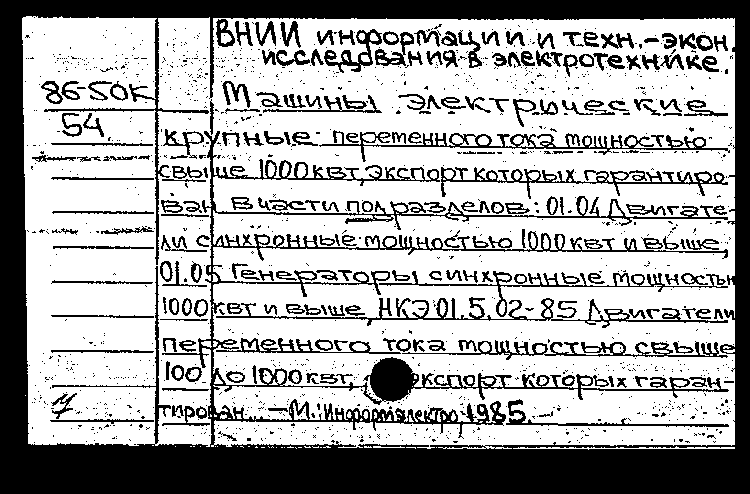 ВНИИ информации и техн.-экон.
исследования в электротехнике.
86-50К
54
Машины электрические
крупные переменного тока мощностью
свыше 1000 квт, экспорт которых гарантиро-
ван в части подразделов: 01.04 Двигате-
ли синхронные мощностью 1000 квт и выше,
01.05 Генераторы синхронные мощностью
1000 квт и выше, НКЭ 01.5.02-85 Двигатели
переменного тока мощностью свыше
100 до 1000 квт, экспорт которых гаран-
тирован. - М.: Информэлектро, 1985. -